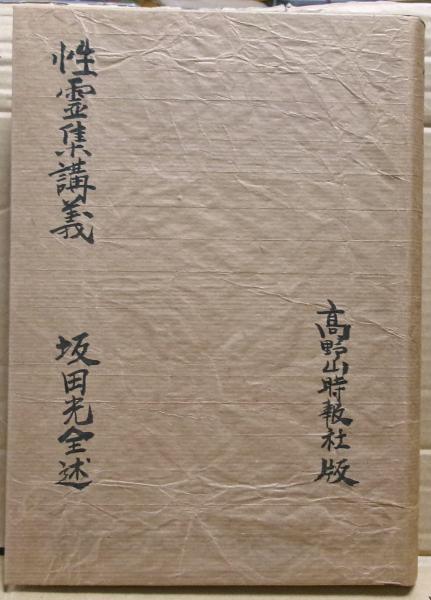 高野山時報社版
性霊集講義
坂田光全述